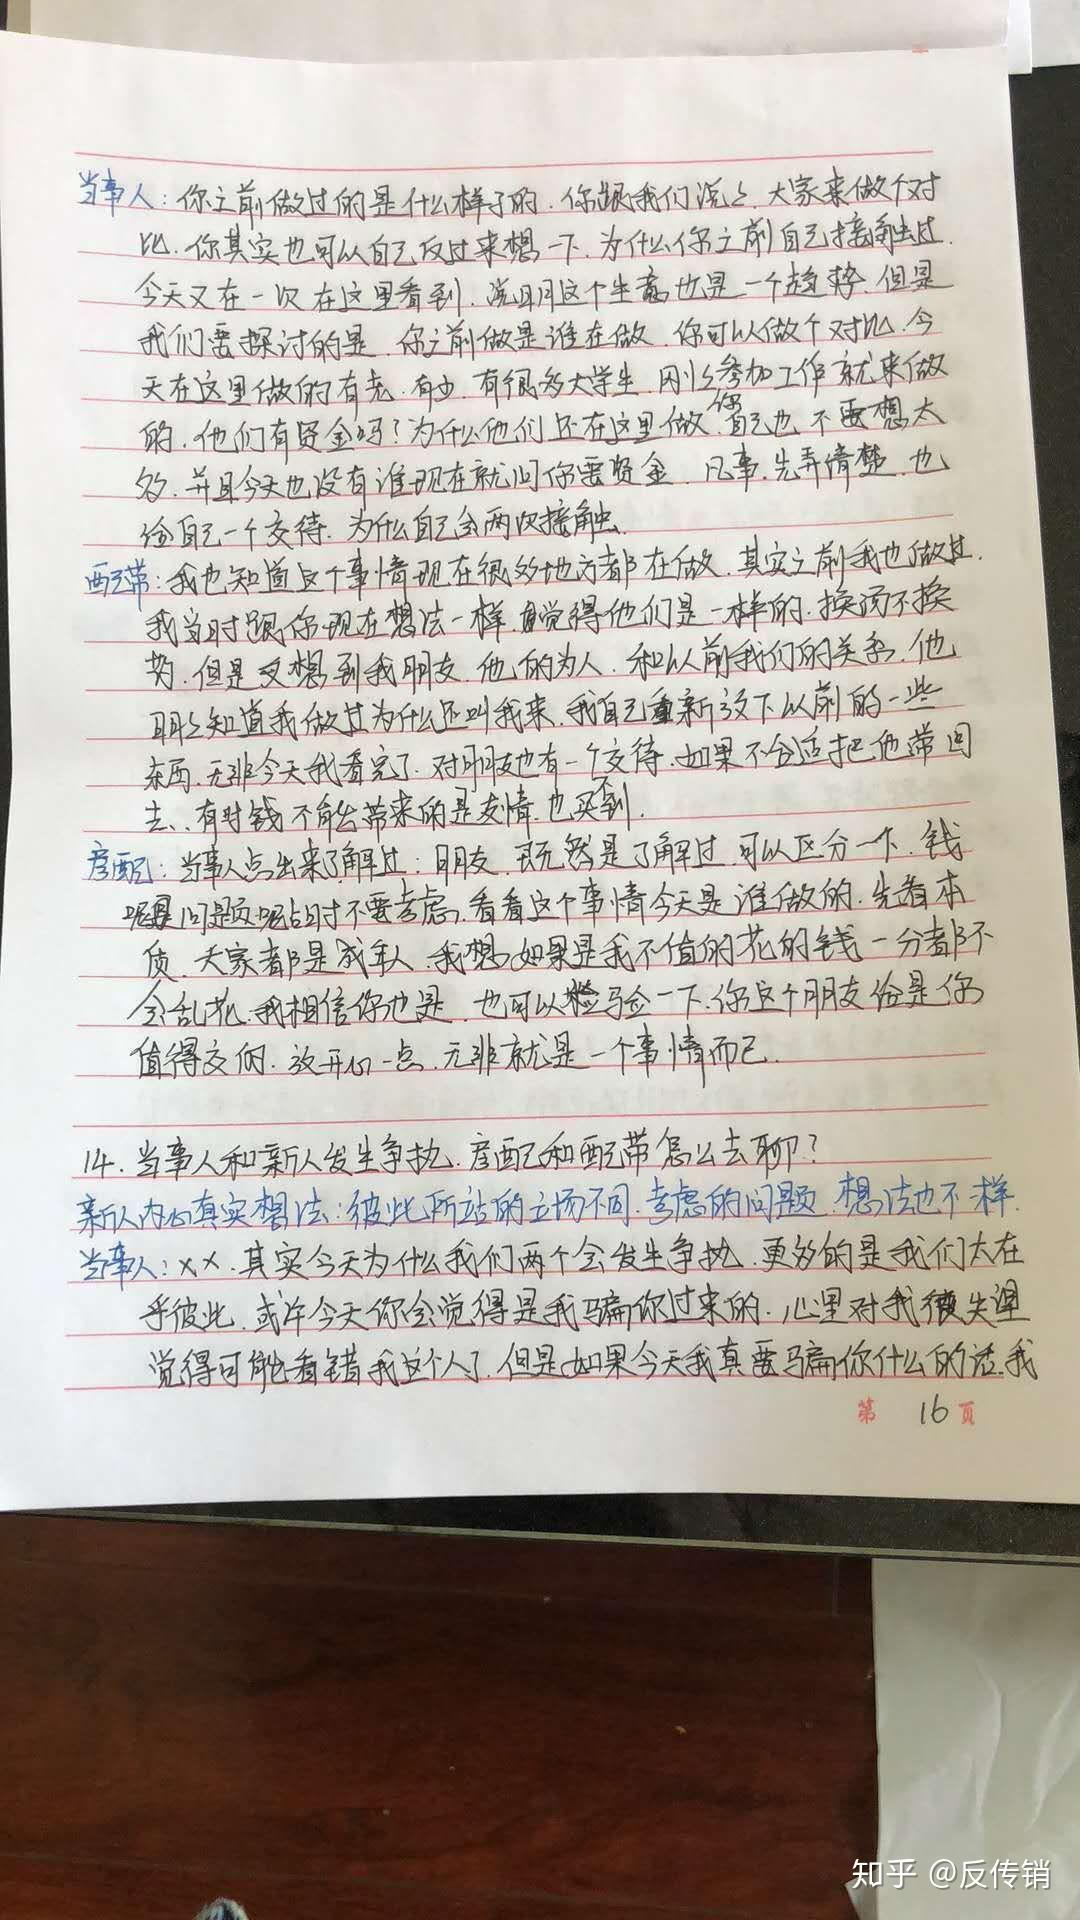 当事人：你之前做过的是什么样子的．你跟我们说々．大家来做个对
比．你其实也可以自己反过来想一下．为什么你之前自己接触过．
今天又在一次在这里看到．说明这个生意也是一个趋势．但是
我们要探讨的是．你之前做是谁在做．你可以做个对比．今
天在这里做的有老．有少．有很多大学生．刚々参加工作就来做
的．他们有资金吗？为什么他们还在这里做．你自己也不要想太
多．并且今天也没有谁现在就问你要资金．凡事．先弄清楚．也
给自己一个交待．为什么自己会两次接触．
配带：我也知道这个事情现在很多地方都在做．其实之前我也做过．
我当时跟你现在想法一样．觉得他们是一样的．换汤不换
药．但是又想到我朋友．他的为人．和以前我们的关系．他
明々知道我做过为什么还叫我来．我自己重新放下以前的一些
东西．无非今天我看完了．对朋友也有一个交待．如果不合适把他带回
去．有时钱不能带来的是友情．也买不到．
彦配：当事人点出来了解过：朋友．既然是了解过．可以区分一下．钱
呢是问题呢占时不要考虑．看看这个事情今天是谁做的．先看本
质．大家都是成年人．我想．如果是我不值的花的钱一分都不
会乱花．我相信你也是．也可以检验一下．你这个朋友给是你
值得交的．放开心一点．无非就是一个事情而已．
14．当事人和新人发生争执．彦配和配带怎么去聊？
新人内心真实想法：彼此所站的立场不同．考虑的问题．想法也不一样．
当事人：××．其实今天为什么我们两个会发生争执．更多的是我们太在
乎彼此．或许今天你会觉得是我骗你过来的．心里对我很失望
觉得可能看错我这个人了．但是如果今天我真要骗你什么的话．我
第 16 页
知乎 @反传销